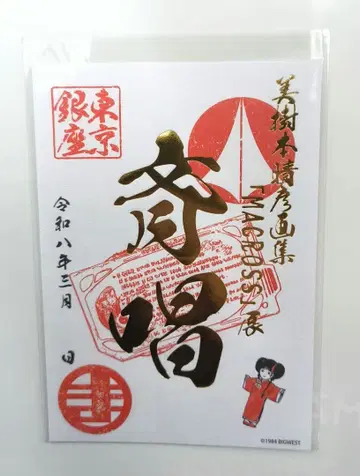 美樹本晴彦画集
「MACROSS」展
斉唱
東京
銀座
令和八年三月 日
©1984 BIGWEST